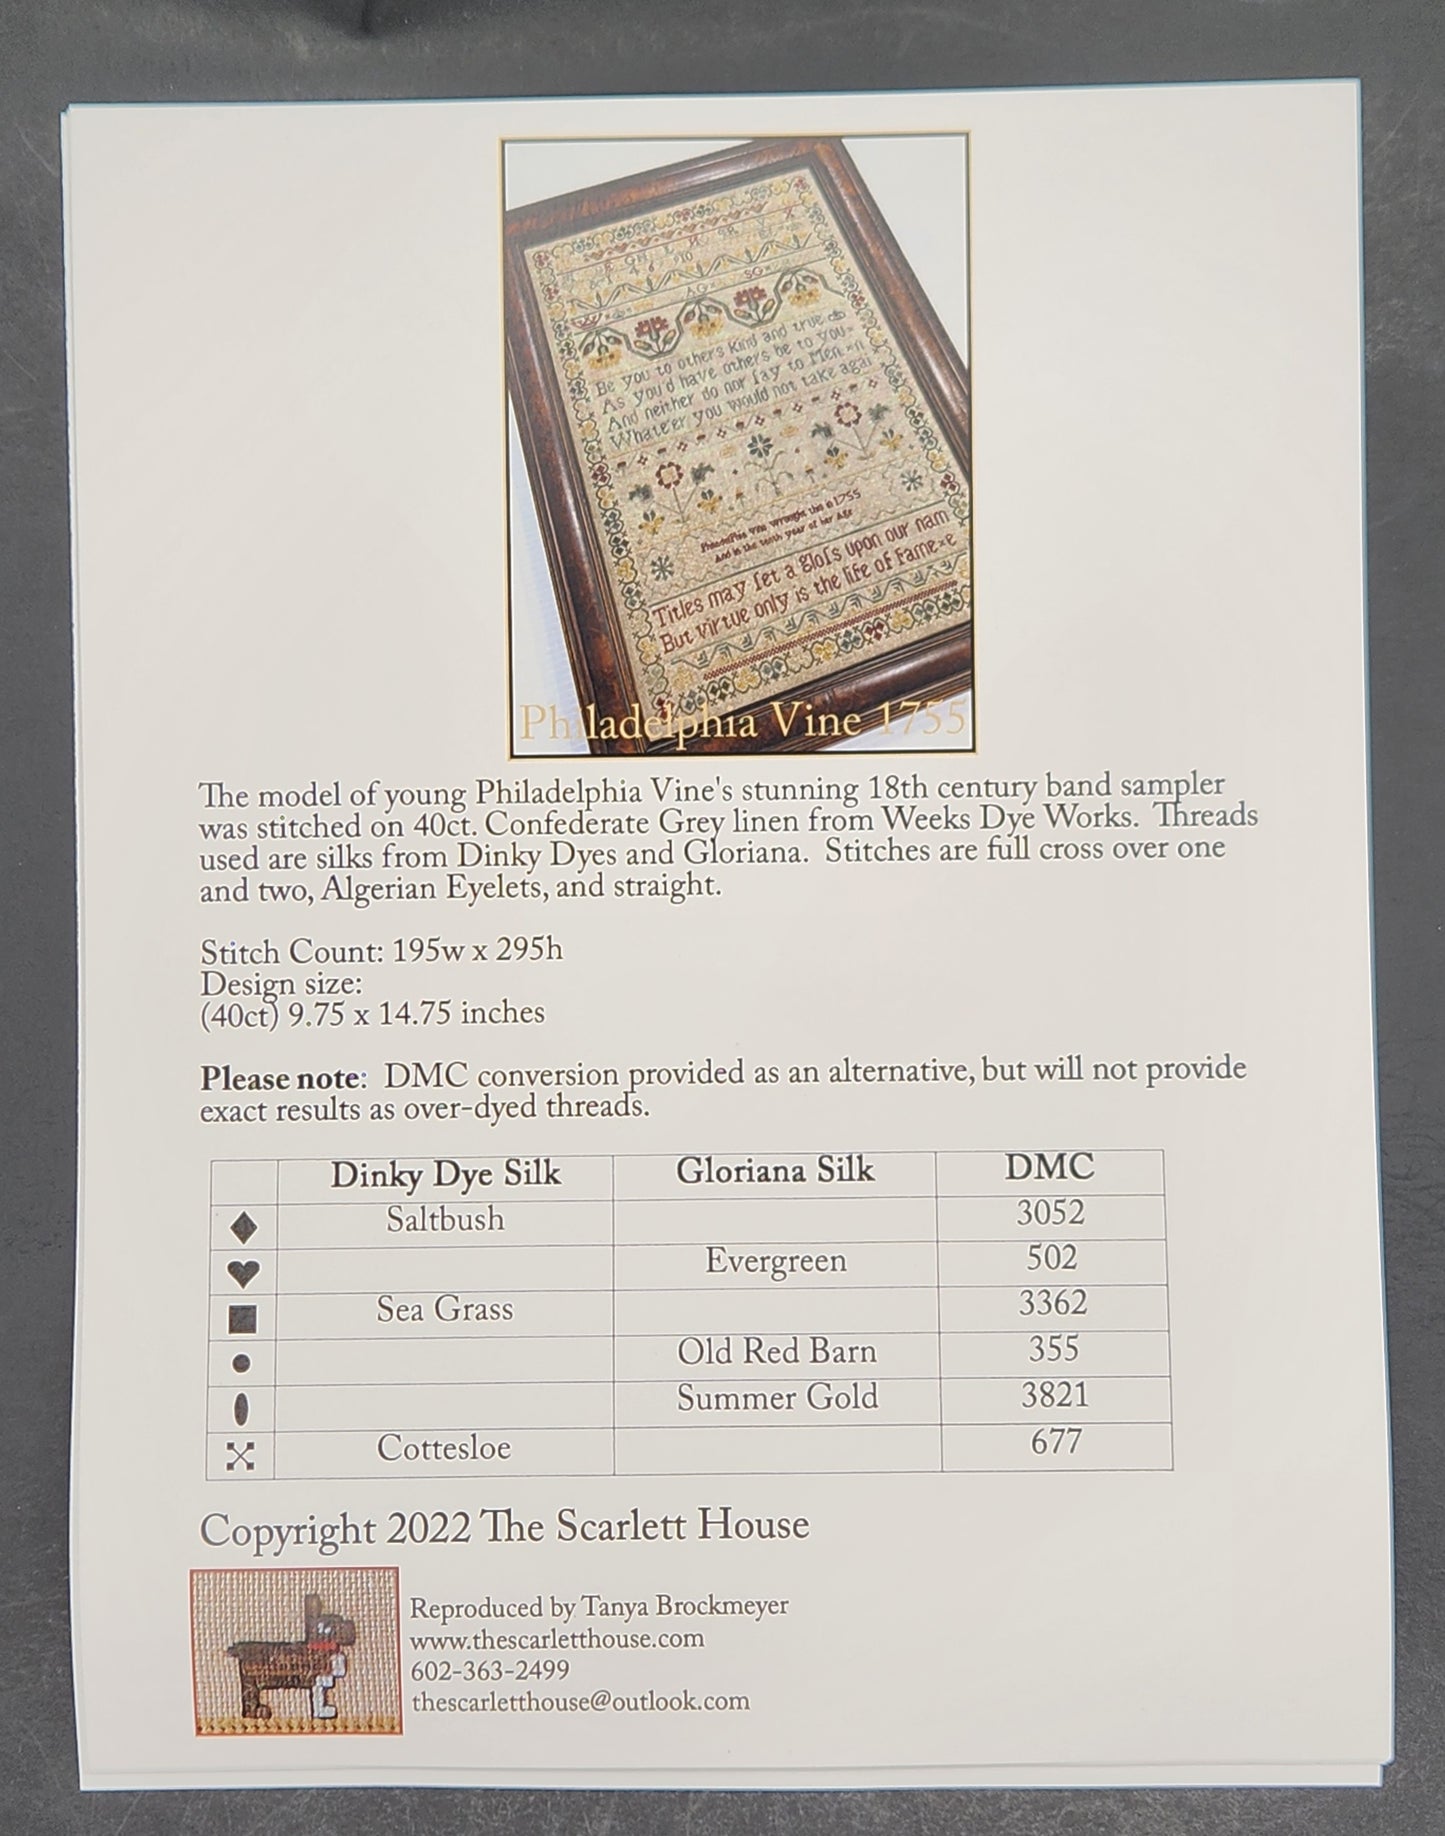 AG
SG
Be you to others kind and true
As you'd have others be to you
And neither do nor ſay to Men
Whate'er you would not take agai
Philadelphia Vine Wrought this in 1755
And in the tenth year of her Age
Titles may ſet a gloſs upon our nam
But virtue only is the life of Fame
Philadelphia Vine 1755
The model of young Philadelphia Vine's stunning 18th century band sampler
was stitched on 40ct. Confederate Grey linen from Weeks Dye Works. Threads
used are silks from Dinky Dyes and Gloriana. Stitches are full cross over one
and two, Algerian Eyelets, and straight.
Stitch Count: 195w x 295h
Design size:
(40ct) 9.75 x 14.75 inches
Please note: DMC conversion provided as an alternative, but will not provide
exact results as over-dyed threads.
Dinky Dye Silk Gloriana Silk DMC
Saltbush 3052
Evergreen 502
Sea Grass 3362
Old Red Barn 355
Summer Gold 3821
Cottesloe 677
Copyright 2022 The Scarlett House
Reproduced by Tanya Brockmeyer
www.thescarletthouse.com
602-363-2499
thescarletthouse@outlook.com